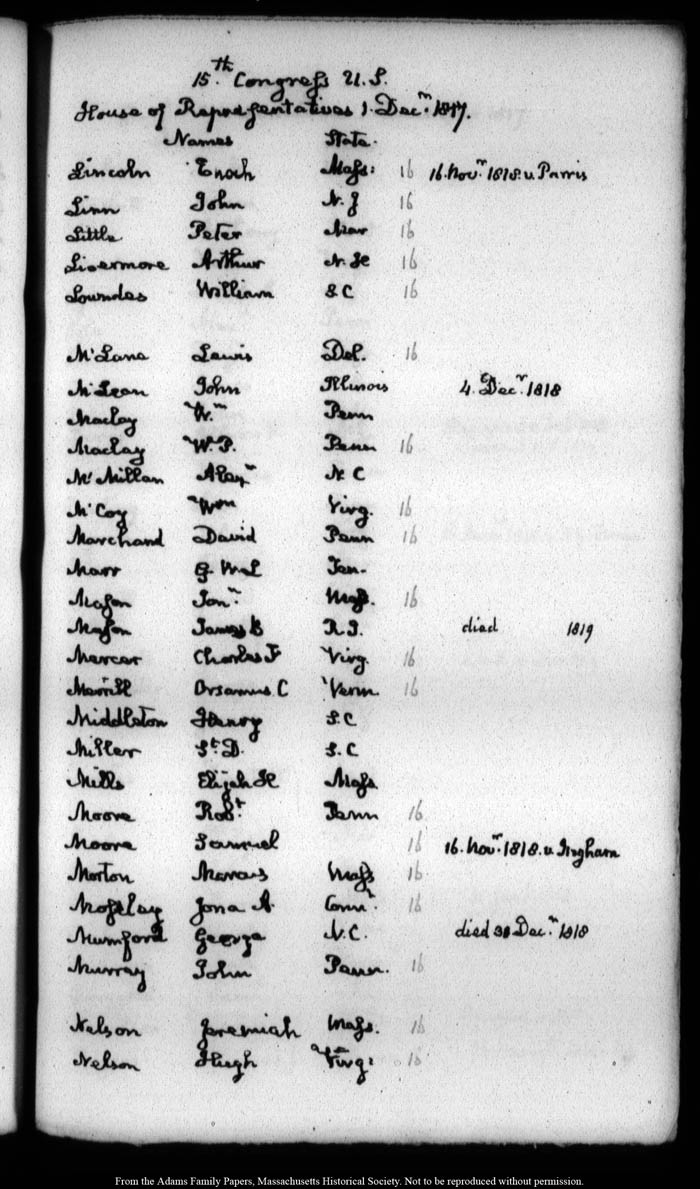 15.th Congress U.S.
House of Representatives 1. Decr. 1817.
Names State.
Lincoln Enoch Mass: 16 16. Novr. 1818. v. Parris
Linn John N. J 16
Little Peter Mar 16
Livermore Arthur N. H 16
Lowndes William S C 16
McLane Lewis Del. 16
McLean John Illinois 4. Decr. 1818
Maclay Wm. Penn
Maclay W. P. Penn 16
McMillan Alexr N C
McCoy Wm Virg. 16
Marchand David Penn 16
Marr G. W. L Ten.
Mason Jonn. Mass. 16
Mason James B R. I. died 1819
Mercer Charles F Virg. 16
Merrill Orsamus C Verm. 16
Middleton Henry S. C
Miller St. D. S. C
Mills Elijah H Mass
Moore Robt. Penn 16
Moore Samuel 16 16. Novr. 1818. v. Ingham
Morton Marcus Mass 16
Moseley Jona. O. Connt. 16
Mumford George N. C. died 31 Decr. 1818
Murray John Penn. 16
Nelson Jeremiah Mass. 16
Nelson Hugh Virg: 16
From the Adams Family Papers, Massachusetts Historical Society. Not to be reproduced without permission.